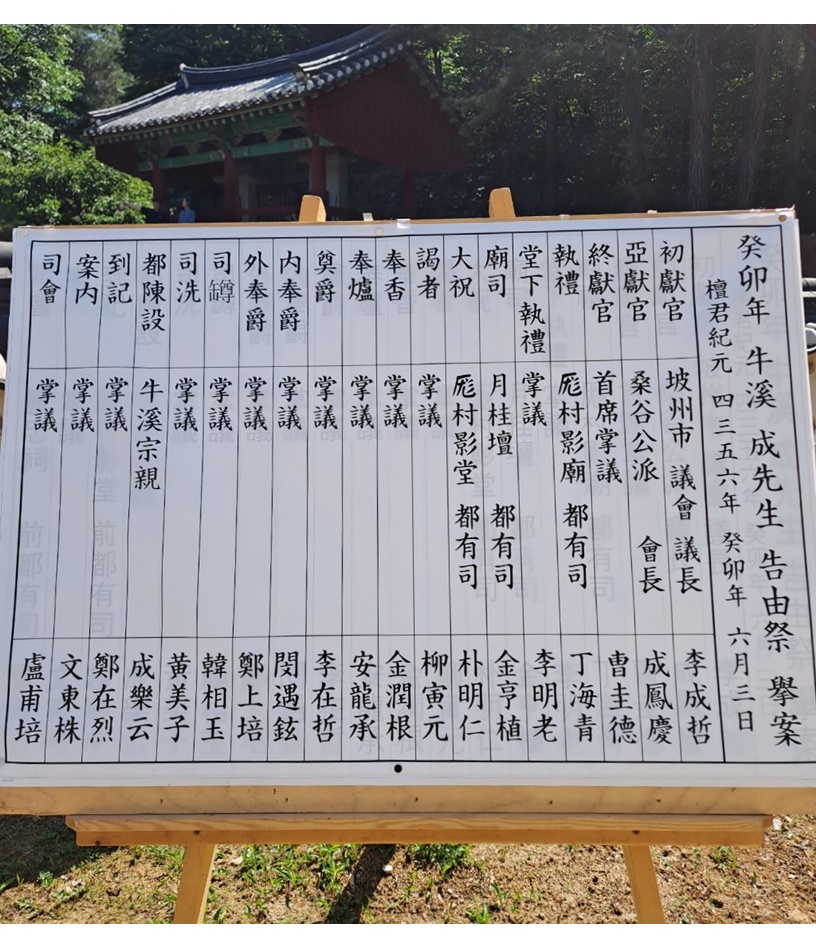 癸卯年 牛溪 成先生 告由祭 擧案
檀君紀元 四三五六年 癸卯年 六月三日
初獻官 坡州市 議會 議長 李成哲
亞獻官 桑谷公派 會長 成鳳慶
終獻官 首席掌議 曹圭德
執禮 厖村影廟 都有司 丁海青
堂下執禮 掌議 李明老
廟司 月桂壇 都有司 金亨植
大祝 厖村影堂 都有司 朴明仁
謁者 掌議 柳寅元
奉香 掌議 金潤根
奉爐 掌議 安龍承
奠爵 掌議 李在哲
內奉爵 掌議 閔遇鉉
外奉爵 掌議 鄭上培
司罇 掌議 韓相玉
司洗 掌議 黃美子
都陳設 牛溪宗親 成樂云
到記 掌議 鄭在烈
案內 掌議 文東株
司會 掌議 盧甫培